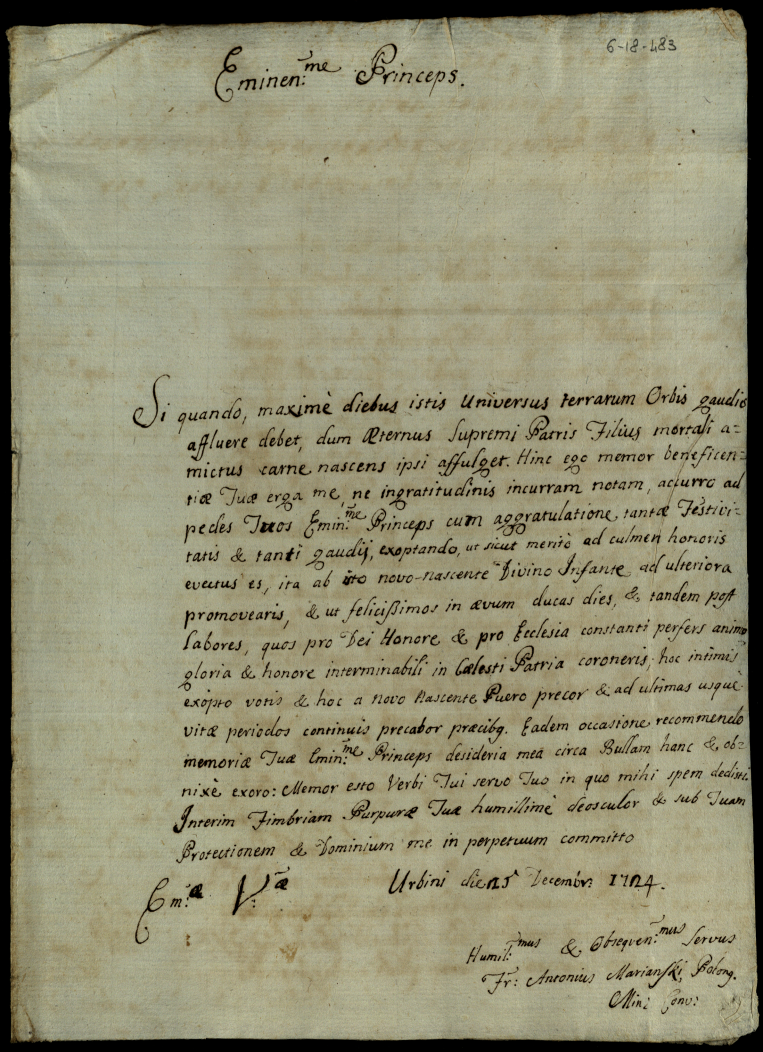 6-18-483
Eminen:me Princeps.
Si quando, maximè diebus istis Universus terrarum Orbis gaudijs
affluere debet, dum Æternus Supremi Patris Filius mortali a=
mictus carne nascens ipsi affulget. Hinc ego memor beneficen=
tiæ Tuæ erga me, ne ingratitudinis incurram notam, accurro ad
pedes Tuos Emin:me Princeps cum aggratulatione tantæ Festivi=
tatis & tanti gaudij, exoptando, ut sicut meritò ad culmen honoris
evectus es, ita ab isto novo-nascente Divino Infante ad ulteriora
promovearis, & ut felicißimos in ævum ducas dies, & tandem post
labores, quos pro Dei Honore & pro Ecclesia constanti perfers animo
gloria & honore interminabili in Cælesti Patria coroneris; hoc intimis
exopto votis & hoc a novo Nascente Puero precor & ad ultimas usque
vitæ periodos continuis precabor præcibq. Eadem occasione recommendo
memoriæ Tuæ Emin:me Princeps desideria mea circa Bullam hanc & ob=
nixè exoro: Memor esto Verbi Tui servo Tuo in quo mihi spem dedisti.
Interim Fimbriam Purpuræ Tuæ humillimè deosculor & sub Tuam
Protectionem & Dominium me in perpetuum committo
Em:æ V:æ Urbini die 25 Decembr: 1724.
Humil:mus & Obsequen:mus Servus
Fr: Antonius Marianski, Polong.
Min: Conv: